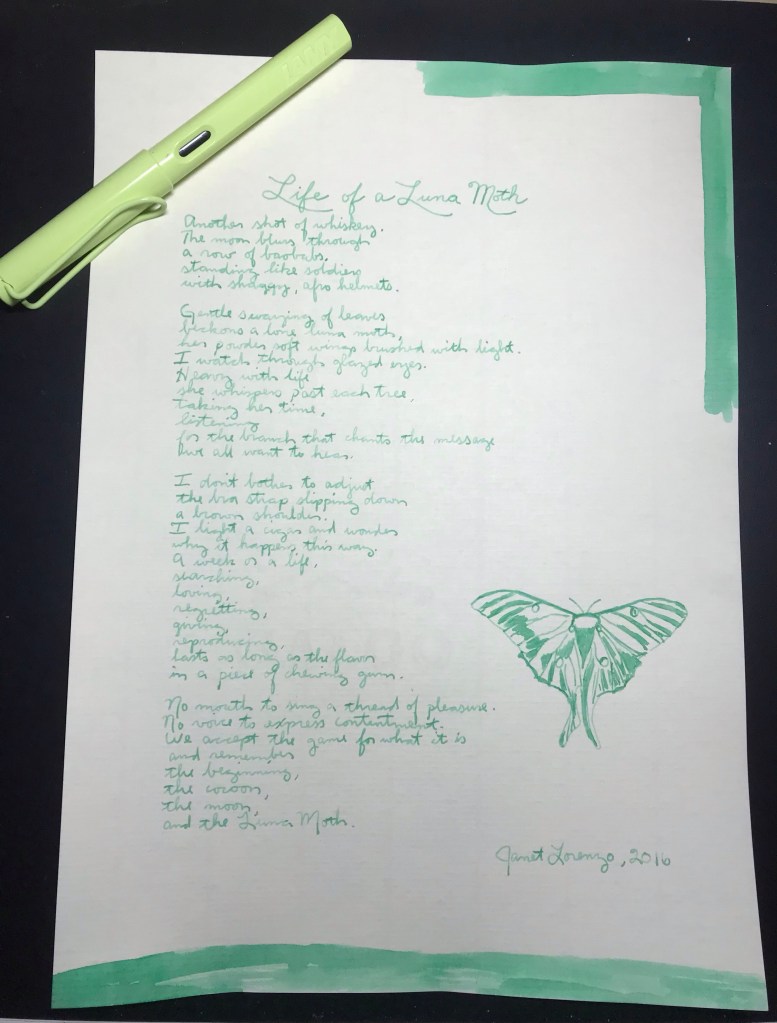 Life of a Luna Moth
Another shot of whiskey.
The moon blurs through
a row of baobabs,
standing like soldiers
with shaggy, afro helmets.
Gentle swaying of leaves
beckons a lone luna moth,
her powder soft wings brushed with light.
I watch through glazed eyes.
Heavy with life
she whispers past each tree,
taking her time,
listening
for the branch that chants the message
we all want to hear.
I don't bother to adjust
the bra strap slipping down
a brown shoulder.
I light a cigar and wonder
why it happens this way.
A week or a life,
searching,
loving,
regretting,
giving,
reproducing,
lasts as long as the flavor
in a piece of chewing gum.
No mouth to sing a thread of pleasure.
No voice to express contentment.
We accept the game for what it is
and remember
the beginning,
the cocoon,
the moon,
and the Luna Moth.
Janet Lorenzo, 2016